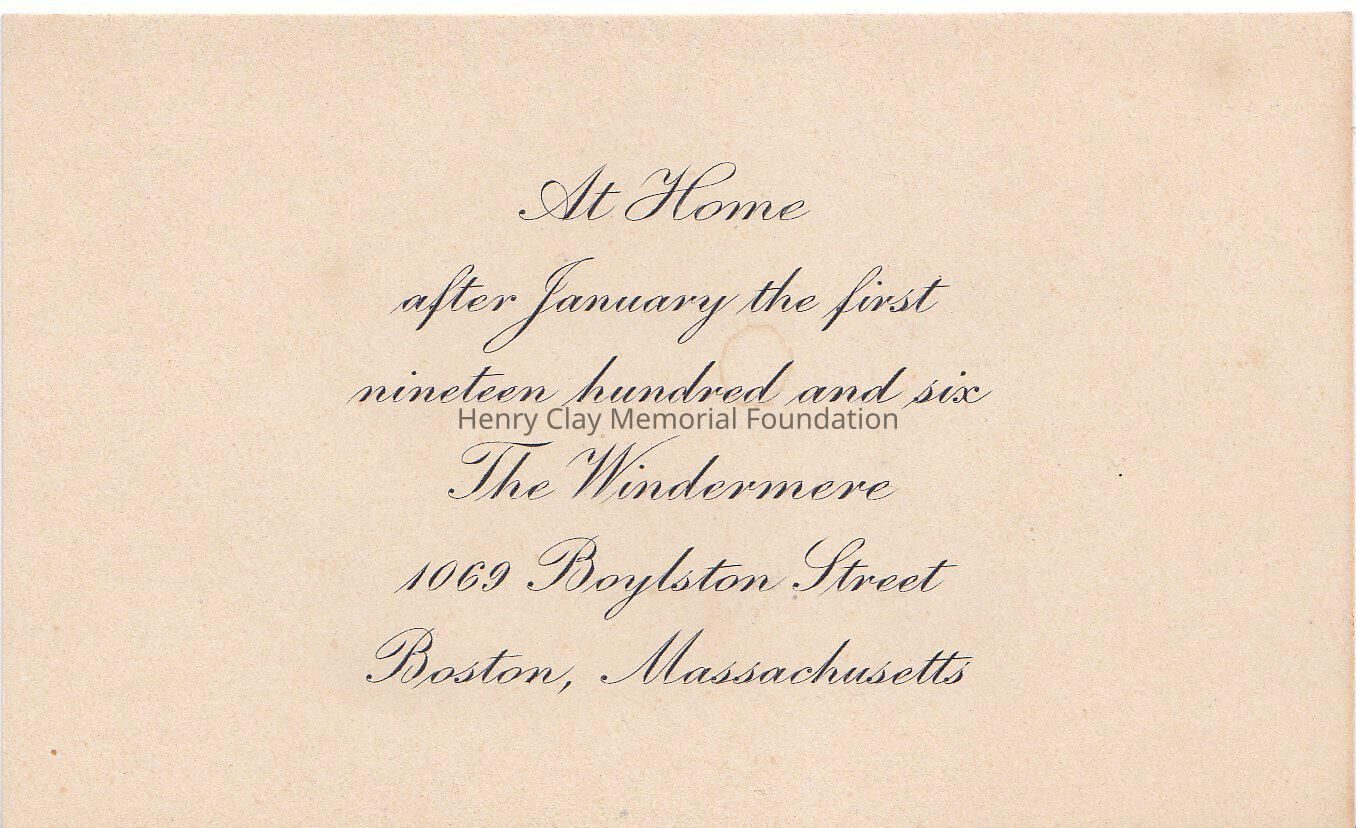 At Home
after January the first
nineteen hundred and six
Henry Clay Memorial Foundation
The Windermere
1069 Boylston Street
Boston, Massachusetts